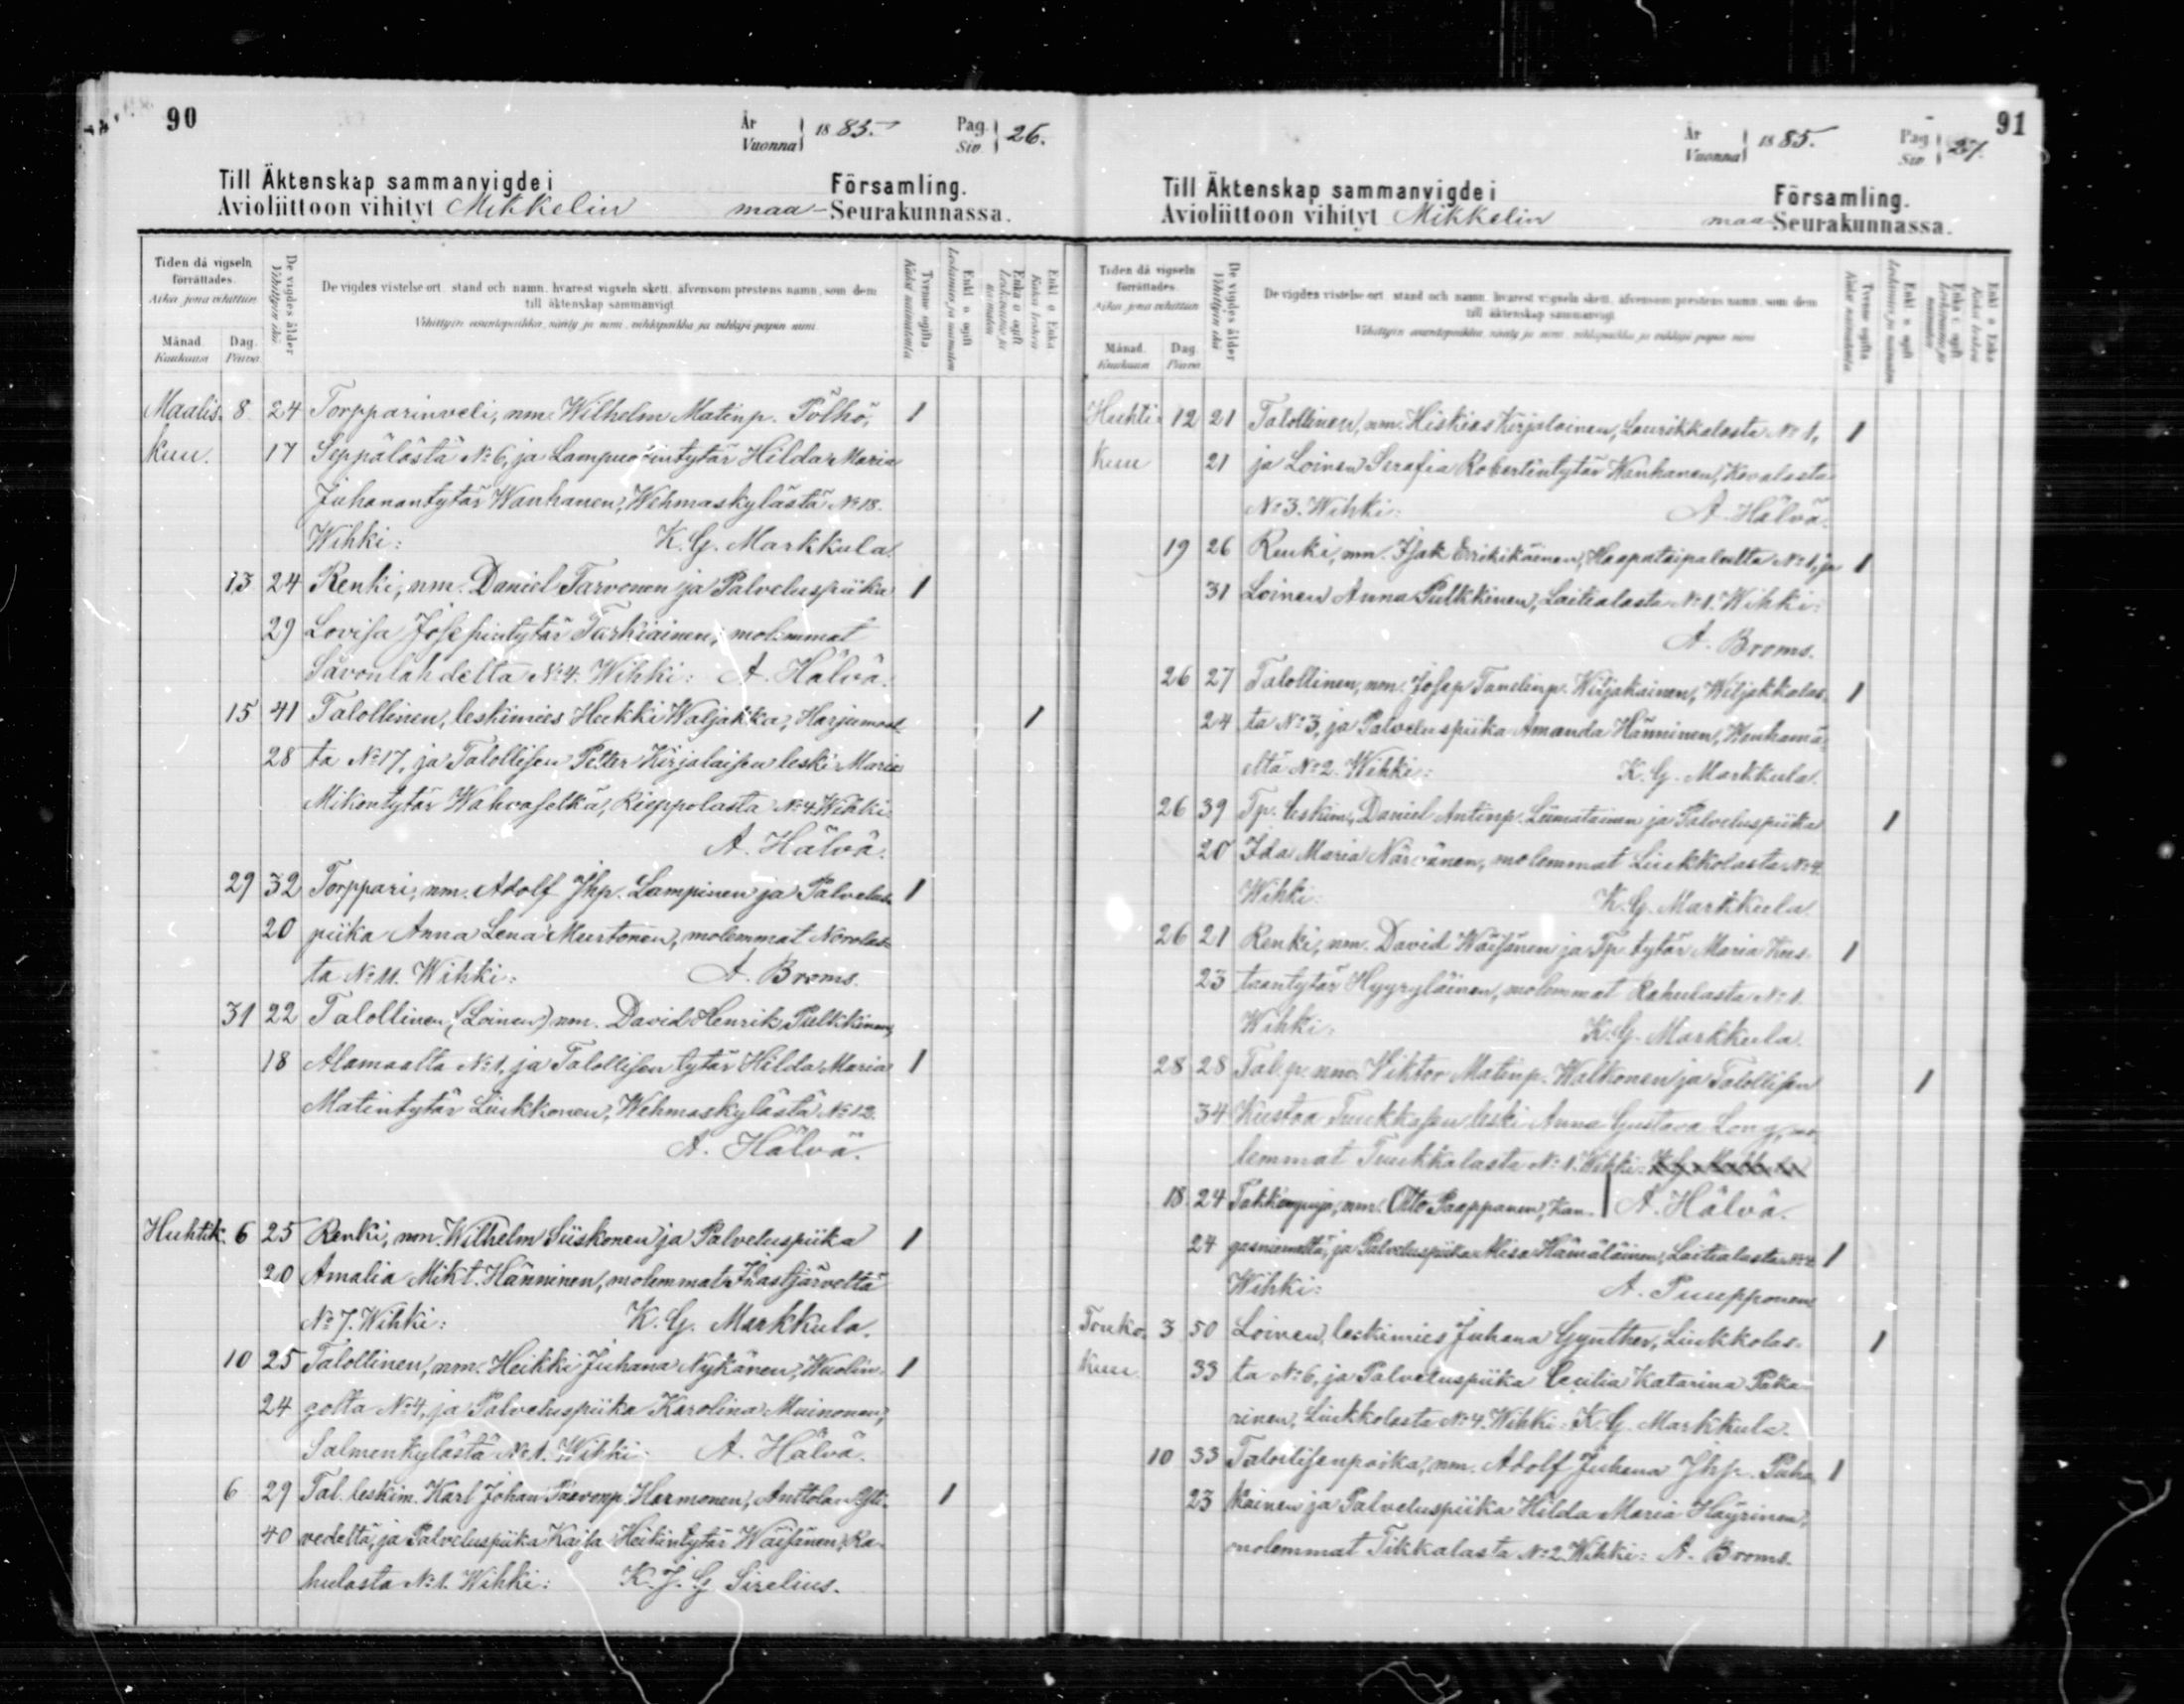 90
År
Vuonna 1885.
Pag.
Siv. 26.
Till Äktenskap sammanvigde i Församling.
Avioliittoon vihityt Mikkelin maa- Seurakunnassa.
Tiden då vigseln förrättades.
Aika, jona vihittiin
Månad. Dag.
Kuukausi Päivä.
De vigdes ålder
Vihittyin ikä
De vigdes vistelse ort, stand och namn, hvarest vigseln skett, äfvensom prestens namn, som dem
till äktenskap sammanvigt.
Vihittyin asuntopaikka, sääty ja nimi, vihkipaikka ja vihkijä papin nimi.
Tvenne ogifta
Kaksi naimatonta
Enkl. o. ogift
Leskimies ja naimaton
Enka o. ogift
Leskivaimo ja naimaton
Enkl. o. Enka
Kaksi leskeä
Maalis- 8 24 Torpparinveli, nm. Wilhelm Matinp. Pölhö, 1
kuu. 17 Seppälästä No 6, ja Lampuodintytär Hilda Maria
Juhanantytär Wanhanen, Wehmaskylästä No 18.
Wihki: K. G. Markkula.
13 24 Renki, nm. Daniel Tarvonen ja Palveluspiika 1
29 Lovisa Josepintytär Turkiainen, molemmat
Savonlahdelta No 4. Wihki: A. Hälvä.
15 41 Talollinen, leskimies Heikki Waljakka, Harjumaal- 1
28 ta No 17, ja Talollisen Petter Kirjalaisen leski Maria
Mikontytär Wahvaselkä, Rieppolasta No 4. Wihki:
A. Hälvä.
29 32 Torppari, nm. Adolf Jhp. Lampinen ja Palvelus- 1
20 piika Anna Lena Mustonen, molemmat Norolas-
ta No 11. Wihki: A. Broms.
31 22 Talollinen (Loinen) nm. David Henrik Pulkkinen,
18 Alamaalta No 1, ja Talollisen tytär Hilda Maria 1
Matintytär Liukkonen, Wehmaskylästä No 12.
A. Hälvä.
Huhtik. 6 25 Renki, nm. Wilhelm Siiskonen ja Palveluspiika 1
20 Amalia Mikt. Hänninen, molemmat Ihastjärveltä
No 7. Wihki: K. G. Markkula.
10 25 Talollinen, nm. Heikki Juhana Nykänen, Wuolin- 1
24 golta No 4, ja Palveluspiika Karolina Muinonen,
Salmenkylästä No 1. Wihki: A. Hälvä.
6 29 Tal. leskim. Karl Johan Paavonp. Harmonen, Anttolan 1
40 vedeltä, ja Palveluspiika Kaisa Heikintytär Wäisänen, Ra-
hulasta No 1. Wihki: K. J. G Sirelius.
91
År
Vuonna 1885.
Pag.
Siv. 27.
Till Äktenskap sammanvigde i Församling.
Avioliittoon vihityt Mikkelin maa Seurakunnassa.
Tiden då vigseln förrättades.
Aika, jona vihittiin
Månad. Dag.
Kuukausi Päivä.
De vigdes ålder
Vihittyin ikä
De vigdes vistelse ort, stand och namn, hvarest vigseln skett, äfvensom prestens namn, som dem
till äktenskap sammanvigt.
Vihittyin asuntopaikka, sääty ja nimi, vihkipaikka ja vihkijä papin nimi.
Tvenne ogifta
Kaksi naimatonta
Enkl. o. ogift
Leskimies ja naimaton
Enka o. ogift
Leskivaimo ja naimaton
Enkl. o. Enka
Kaksi leskeä
Huhti- 12 21 Talollinen, nm. Hiskias Kirjalainen, Laurikkalasta No 1, 1
kuu 21 ja Loinen Serafia Robertintytär Wanhanen, Kovalasta
No 3. Wihki: A. Hälvä.
19 26 Renki, nm. Isak Erikikäinen, Haapataipaleelta No 1, ja 1
31 Loinen Anna Pulkkinen, Laitialasta No 1. Wihki:
A. Broms.
26 27 Talollinen, nm. Josep Tanelinp. Wiljakainen, Wiljakkalas- 1
24 ta No 3, ja Palveluspiika Amanda Hänninen, Wanhamä-
eltä No 2. Wihki: K. G. Markkula.
26 39 Tp. leskim. Daniel Antinp. Liimatainen ja Palveluspiika 1
20 Ida Maria Närvänen, molemmat Liukkolasta No 4.
Wihki: K. G. Markkula.
26 21 Renki, nm. David Wäisänen ja Tp. tytär Maria Kus- 1
23 taantytär Hyyryläinen, molemmat Rahulasta No 1.
Wihki: K. G. Markkula.
28 28 Tal. p. nm. Viktor Matinp. Walkonen ja Talollisen 1
34 Kustaa Tuukkasen leski Anna Gustava Long, mo-
lemmat Tuukkalasta No 1. Wihki:
A. Hälvä.
18 24 nm. Otto Paappanen, Kan-
24 gasniemeltä, ja Palveluspiika Miina Hämäläinen, Laitialasta No 4. 1
Wihki: A. Puupponen
Touko- 3 50 Loinen, leskimies Juhana Gynther, Liukkolas- 1
kuu 33 ta No 6, ja Palveluspiika Cecilia Katarina Paka-
rinen, Liukkolasta No 4. Wihki: K. G. Markkula.
10 33 Talollisenpoika, nm. Adolf Juhana Jhp. Puha- 1
23 kainen ja Palveluspiika Hilda Maria Häyrinen,
molemmat Tikkalasta No 2. Wihki: A. Broms.